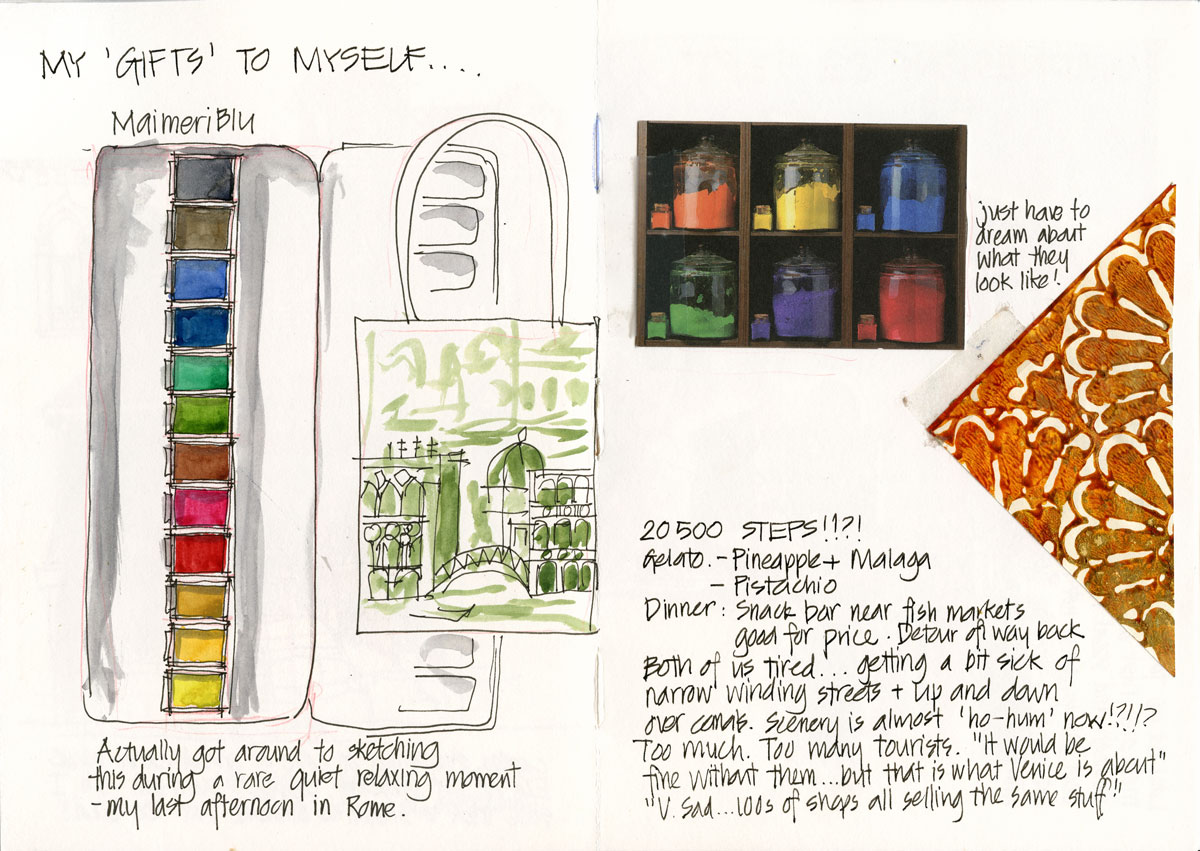 MY 'GIFTS' TO MYSELF....
MaimeriBlu
Actually got around to sketching
this during a rare quiet relaxing moment
- my last afternoon in Rome.
just have to
dream about
what they
look like!
20500 STEPS!!?!
Gelato. - Pineapple + Malaga
- Pistachio
Dinner: Snack bar near fish markets
good for price. Detour on way back
Both of us tired... getting a bit sick of
narrow winding streets + up and down
over canals. Scenery is almost 'ho-hum' now!?!!?
Too much. Too many tourists. "It would be
fine without them...but that is what Venice is about"
"V. sad...100s of shops all selling the same stuff"